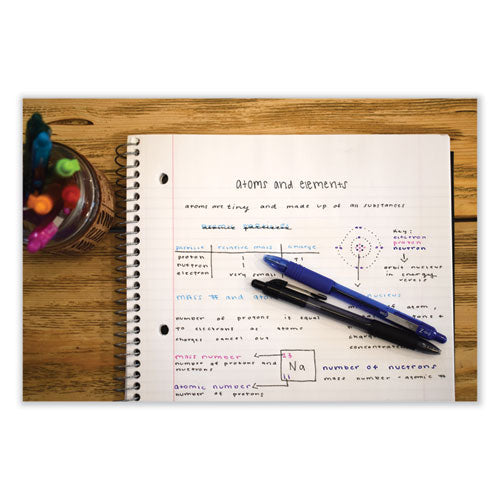 atoms and elements
atoms are tiny and made up of all substances
atomic particles
particle relative mass charge
proton 1 +1
neutron
electron very small
Key:
electron
proton
neutron
orbit nucleus
in energy
levels
mass # and
nucleus
number of protons is equal
to electrons so atomic
charges cancel out
atom,
protons +
concentrated
mass number
number of protons and
neutrons
23
Na
11
atomic number
number of protons
number of neutrons
mass number - atomic #